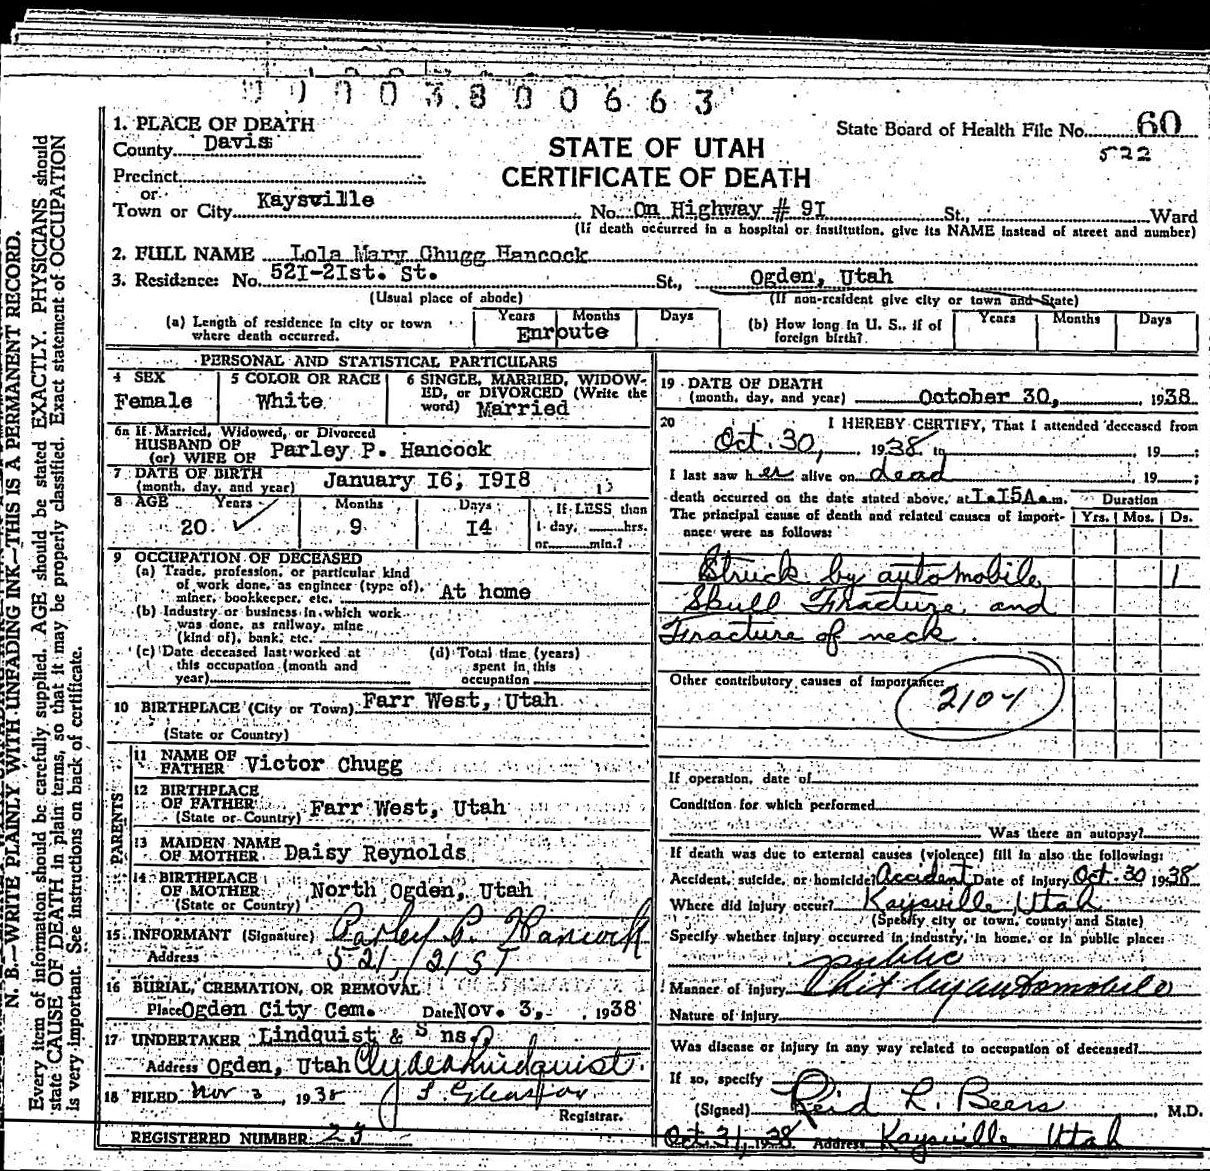 0000380663
1. PLACE OF DEATH
County Davis
Precinct
or
Town or City Kaysville No. On Highway # 91 St., Ward
(If death occurred in a hospital or institution, give its NAME instead of street and number)
STATE OF UTAH
CERTIFICATE OF DEATH
State Board of Health File No. 60
522
2. FULL NAME Lola Mary Chugg Hancock
3. Residence: No. 521-21st. St. St., Ogden, Utah
(Usual place of abode) (If non-resident give city or town and State)
(a) Length of residence in city or town where death occurred. Years Months Days
Enroute
(b) How long in U. S., if of foreign birth? Years Months Days
PERSONAL AND STATISTICAL PARTICULARS
4 SEX
Female
5 COLOR OR RACE
White
6 SINGLE, MARRIED, WIDOW-
ED, or DIVORCED (Write the
word) Married
6a If Married, Widowed, or Divorced
HUSBAND OF
(or) WIFE OF Parley P. Hancock
7 DATE OF BIRTH
(month, day, and year) January 16, 1918
8 AGE Years Months Days If LESS than
20 9 14 1 day, hrs.
or min.?
9 OCCUPATION OF DECEASED
(a) Trade, profession, or particular kind
of work done, as engineer (type of),
miner, bookkeeper, etc. At home
(b) Industry or business in which work
was done, as railway, mine
(kind of), bank, etc.
(c) Date deceased last worked at
this occupation (month and
year)
(d) Total time (years)
spent in this
occupation
10 BIRTHPLACE (City or Town) Farr West, Utah
(State or Country)
PARENTS
11 NAME OF
FATHER Victor Chugg
12 BIRTHPLACE
OF FATHER Farr West, Utah
(State or Country)
13 MAIDEN NAME
OF MOTHER Daisy Reynolds
14 BIRTHPLACE
OF MOTHER North Ogden, Utah
(State or Country)
15 INFORMANT (Signature) Parley P. Hancock
Address 521, 21 ST
16 BURIAL, CREMATION, OR REMOVAL
Place Ogden City Cem. Date Nov. 3, 1938
17 UNDERTAKER Lindquist & S ns
Address Ogden, Utah Clyde Lindquist
18 FILED Nov 3, 1938
Registrar.
REGISTERED NUMBER 23
19 DATE OF DEATH
(month, day, and year) October 30, 1938
20 I HEREBY CERTIFY, That I attended deceased from
Oct. 30, 1938 to 19 ;
I last saw her alive on dead 19 ;
death occurred on the date stated above, at 1.15A.m. Duration
The principal cause of death and related causes of import- Yrs. Mos. Ds.
ance were as follows:
Struck by automobile 1
Skull Fracture and
Fracture of neck.
Other contributory causes of importance:
If operation, date of
Condition for which performed
Was there an autopsy?
If death was due to external causes (violence) fill in also the following:
Accident, suicide, or homicide Accident Date of injury Oct. 30 1938
Where did injury occur? Kaysville Utah
(Specify city or town, county and State)
Specify whether injury occurred in industry, in home, or in public place:
public
Manner of injury hit by automobile
Nature of injury
Was disease or injury in any way related to occupation of deceased?
If so, specify
(Signed) Reid L. Beers, M.D.
Oct. 31, 1938 Address Kaysville Utah
N. B.—WRITE PLAINLY WITH UNFADING INK—THIS IS A PERMANENT RECORD.
Every item of information should be carefully supplied. AGE should be stated EXACTLY. PHYSICIANS should
state CAUSE OF DEATH in plain terms, so that it may be properly classified. Exact statement of OCCUPATION
is very important. See instructions on back of certificate.